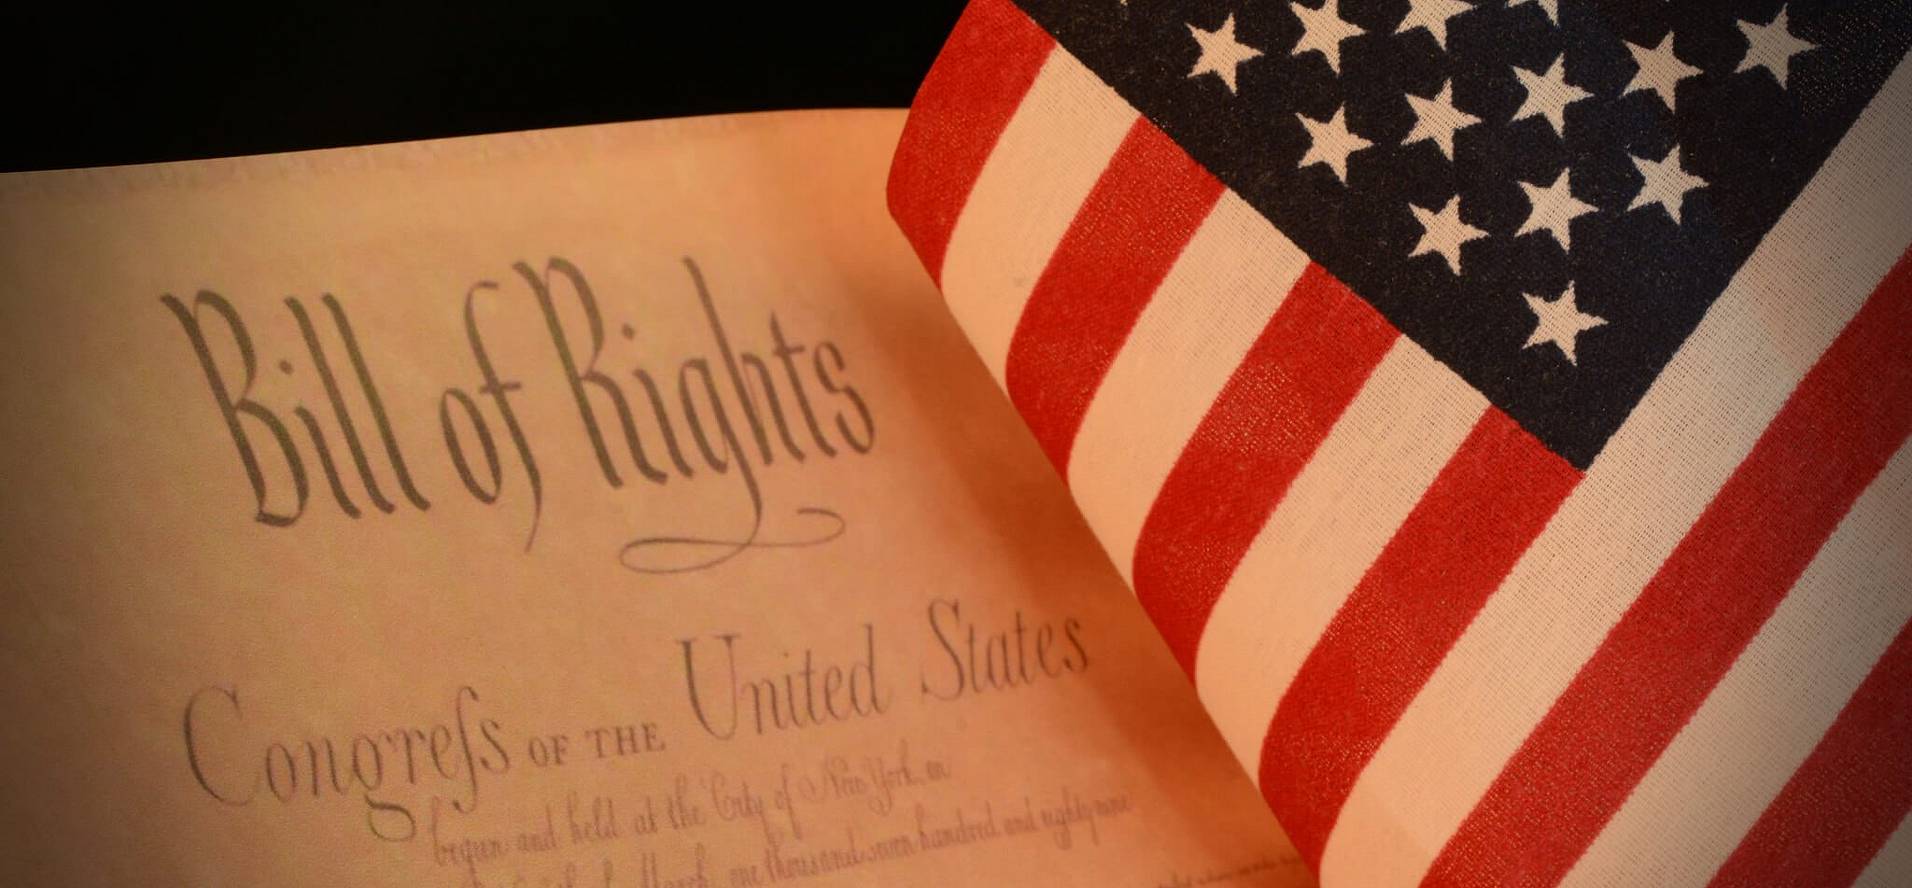 Bill of Rights
Congreſs OF THE United States
begun and held at the City of New York, on
March, one thousand seven hundred and eighty nine